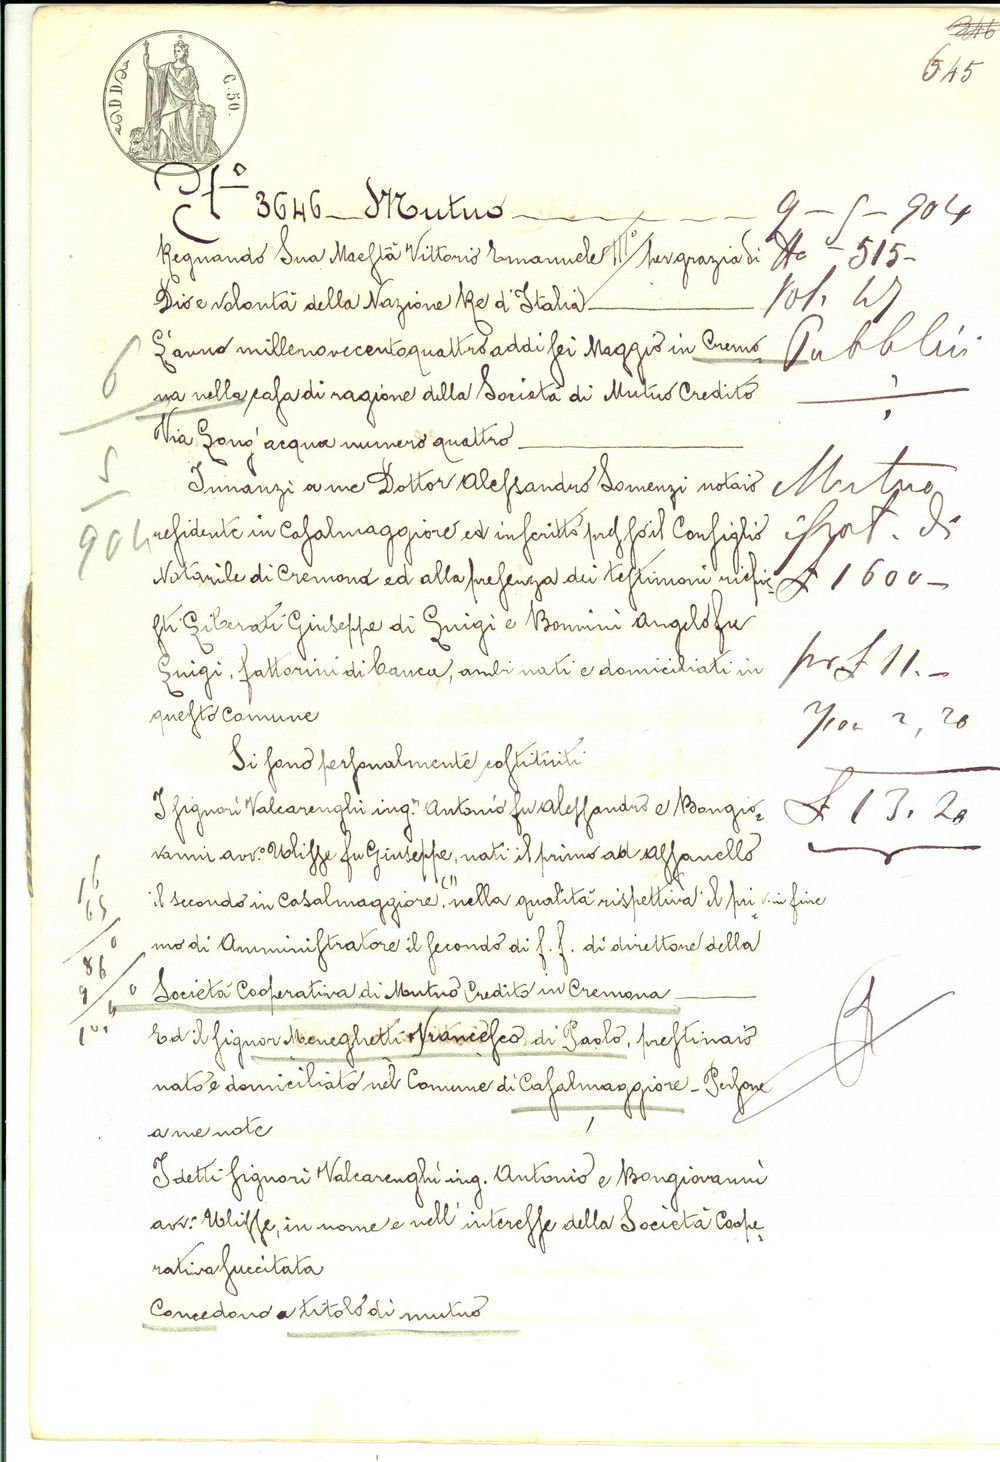 246
645
ADDÌ
C. 50.
N° 3646 Mutuo
Regnando Sua Maestà Vittorio Emanuele III° per grazia di
Dio e volontà della Nazione Re d'Italia
L'anno millenovecentoquattro addì sei Maggio in Cremo-
na nella casa di ragione della Società di Mutuo Credito
Via Long'acqua numero quattro
Innanzi a me Dottor Alessandro Somenzi notaio
residente in Casalmaggiore ed inscritto presso il Consiglio
Notarile di Cremona ed alla presenza dei testimoni richie-
sti Liberati Giuseppe di Luigi e Bonnini Angelo fu
Luigi, fattorini di banca, ambi nati e domiciliati in
questo Comune
Si sono personalmente costituiti
I signori Valcarenghi ing.r Antonio fu Alessandro e Bongio-
vanni avv.° Ulisse fu Giuseppe, nati il primo ad Alfianello
il secondo in Casalmaggiore, nella qualità rispettiva il pri-
mo di Amministratore il secondo di f. f. di direttore della
Società Cooperativa di Mutuo Credito in Cremona
Ed il signor Meneghetti Francesco di Paolo, prestinaio
nato e domiciliato nel Comune di Casalmaggiore - Persone
a me note
I detti signori Valcarenghi ing. Antonio e Bongiovanni
avv.° Ulisse, in nome e nell'interesse della Società Coope-
rativa succitata
Concedono a titolo di mutuo
9 - 5 - 904
N° - 515 -
Vol. 47
Pubblici
Mutuo
ipot. di
£ 1600 -
£ 11. -
2, 20
£ 13. 20
in fine
6
5
904
16
65